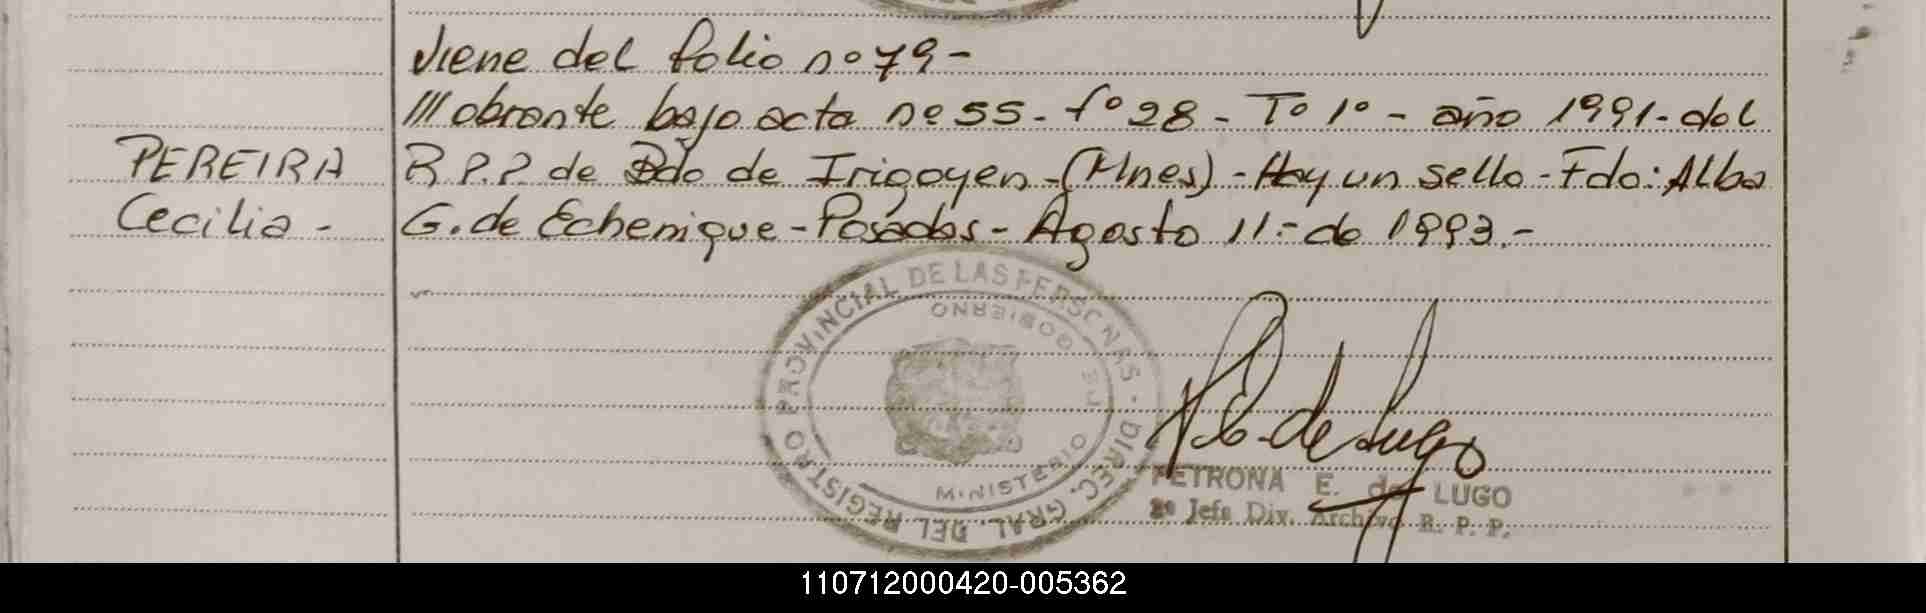 viene del folio no 79-
/// obrante bajo acta no 55- fo 28 - To 1o - año 1991- del
PEREIRA
R.P.P. de Bdo de Irigoyen-(Mnes)-Hay un sello-Fdo: Alba
Cecilia -
G. de Echenique-Posadas-Agosto 11.- de 1993.-
REGISTRO PROVINCIAL DE LAS PERSONAS - DIREC. GRAL. DEL
MINISTERIO DE GOBIERNO
P. E. de Lugo
PETRONA E. de LUGO
2º Jefe Div. Archivo R. P. P.
110712000420-005362